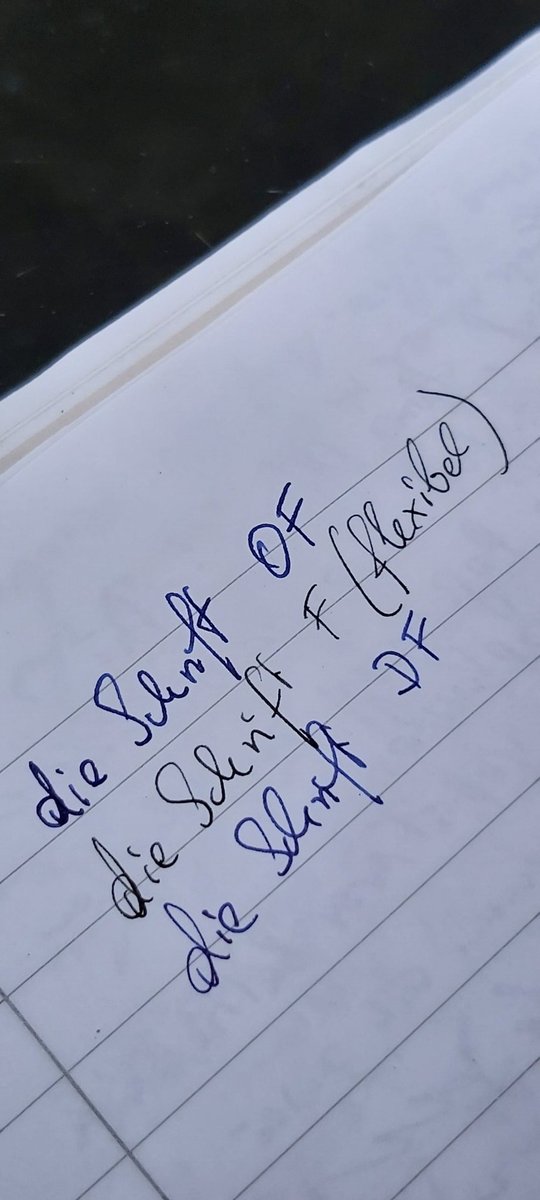 die Schrift DF
die Schrift F (flexibel)
die Schrift DF